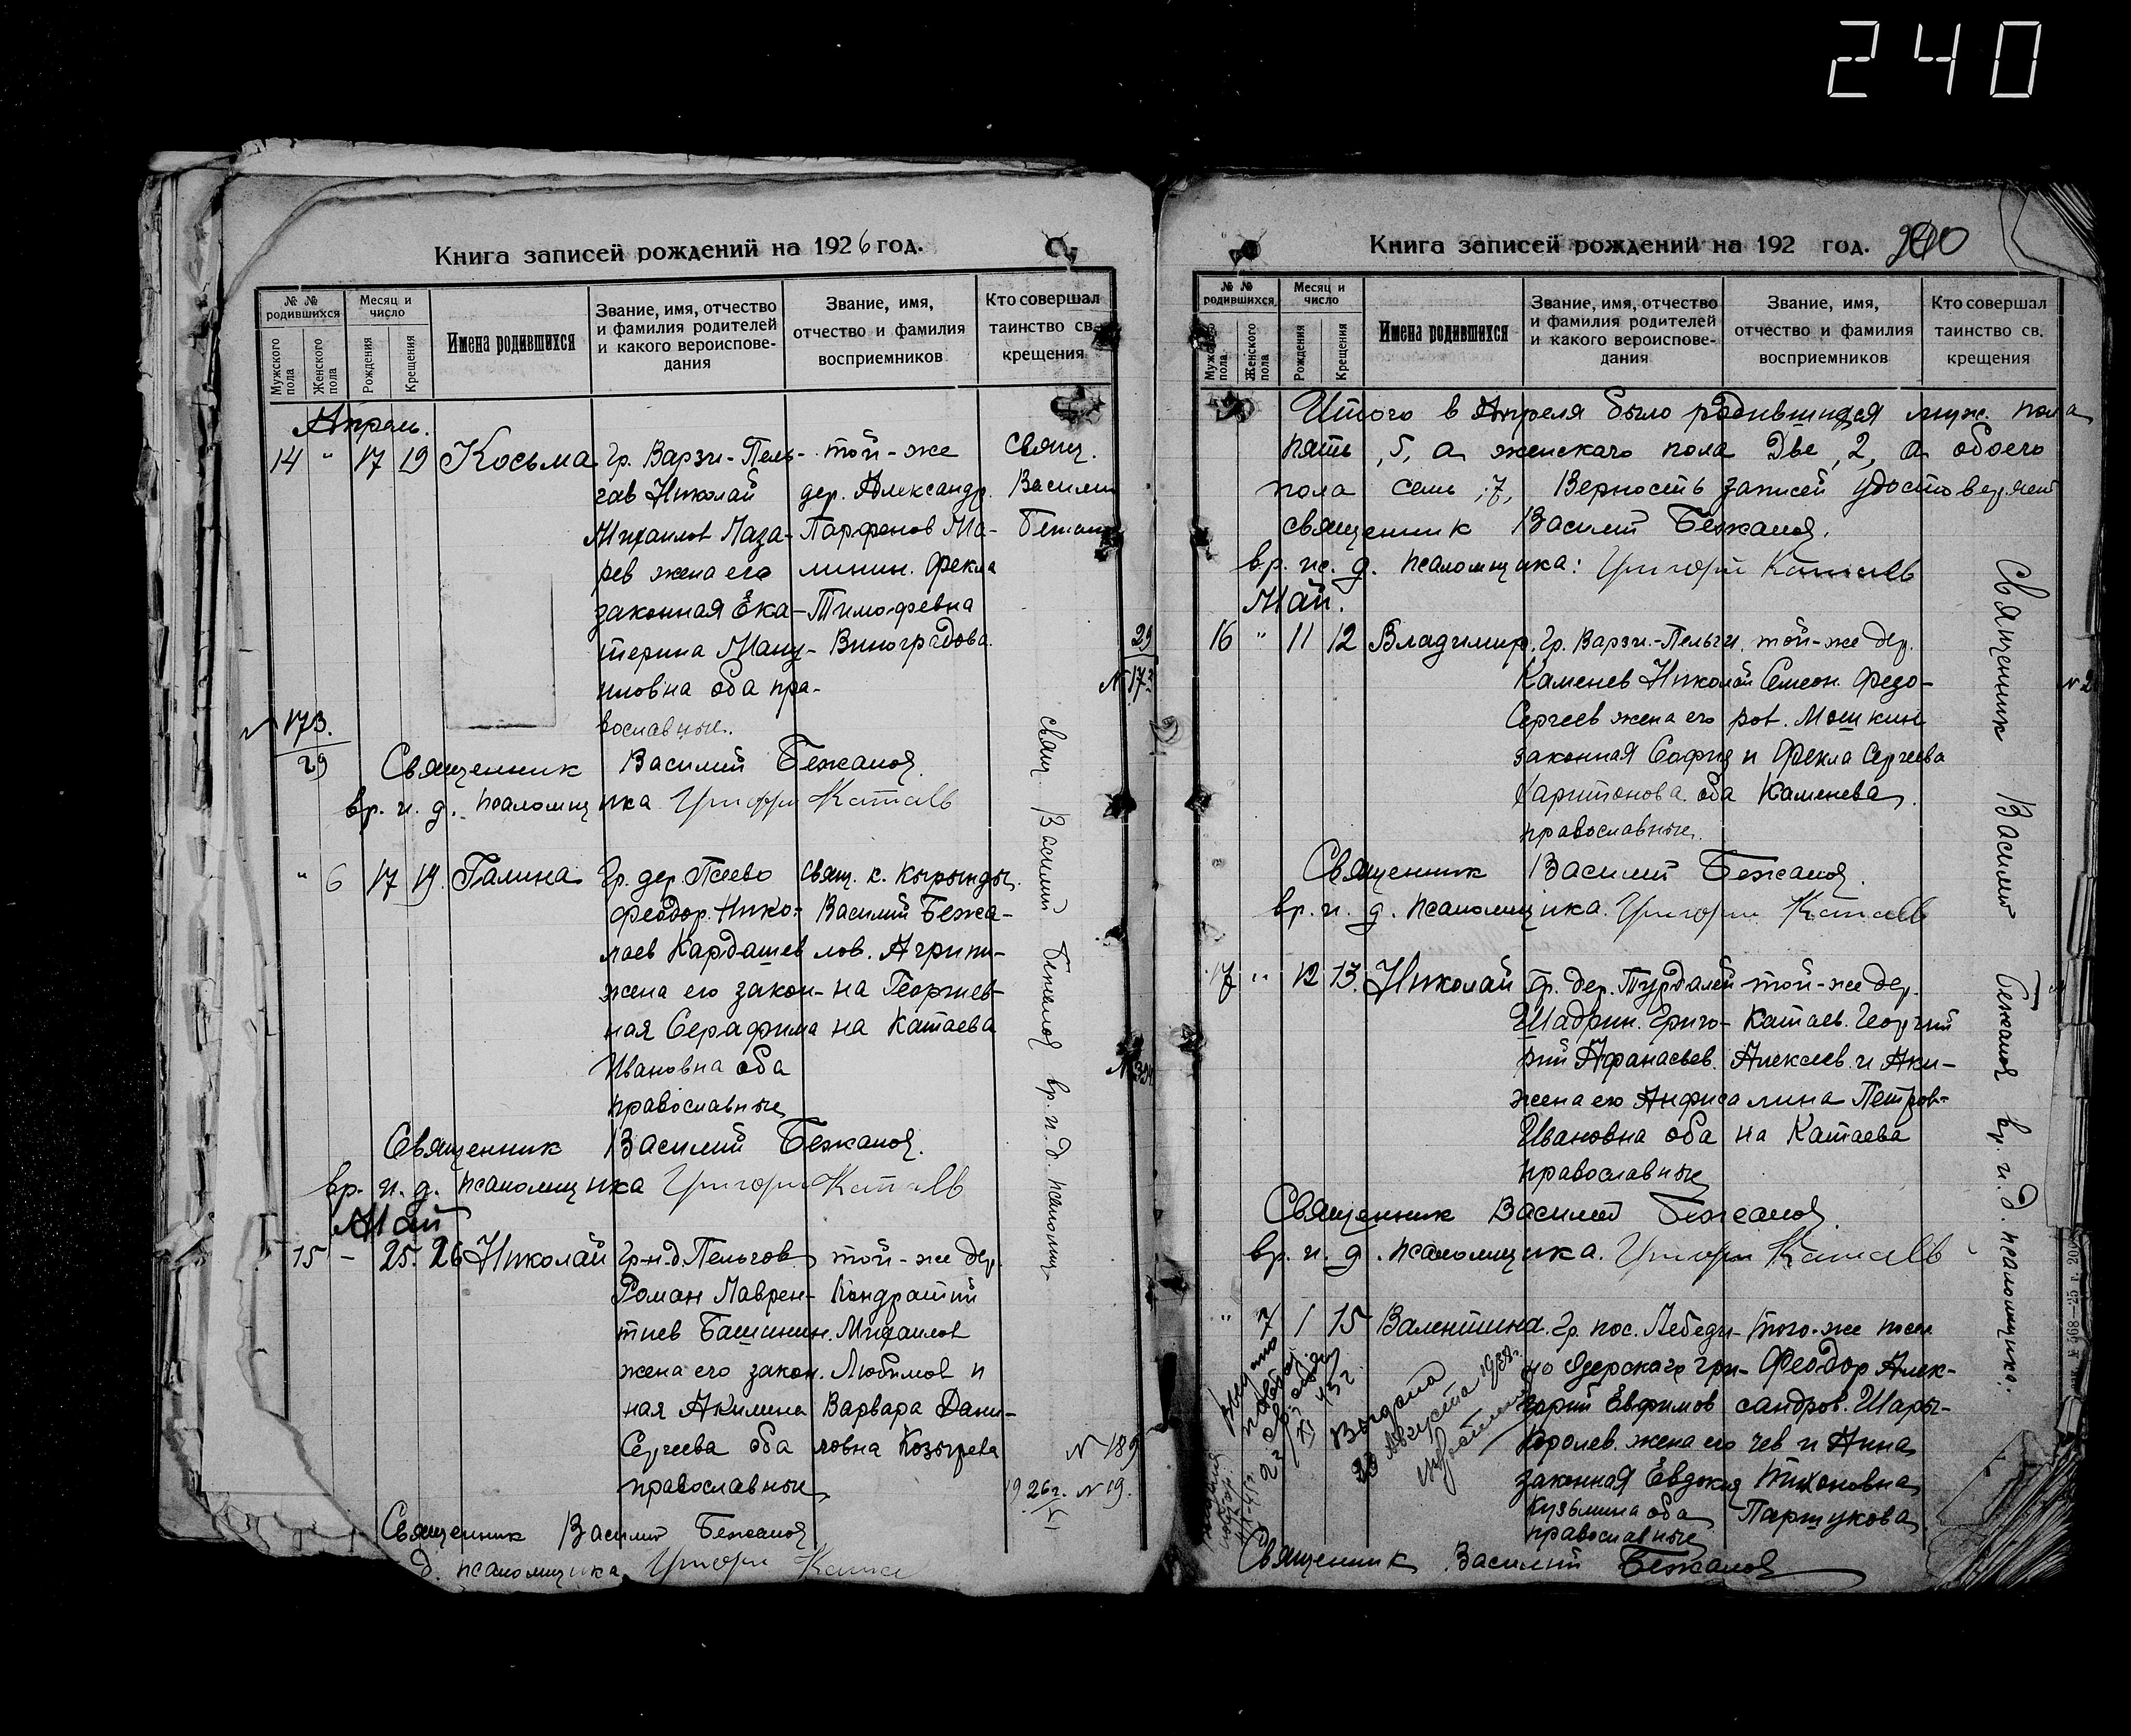 240
Книга записей рождений на 1926 год.
№ № родившихся
Мужского пола
Женского пола
Месяц и число
Рождения
Крещения
Имена родившихся
Звание, имя, отчество и фамилия родителей и какого вероиспове-дания
Звание, имя, отчество и фамилия восприемников
Кто совершал таинство св. крещения
Апрель.
14 " 17 19 Косьма Гр. Варзи-Пель- той-же свящ.
гов Николай дер. Александр. Василий
Михаилов Лаза- Парфенов Ма-
рев жена его линин. Фекла
законная Ека- Тимофевна
терина Ману- Виноградова.
иловна оба пра-
вославные.
№ 173.
29
Священник Василий Бежанов.
вр. и. д. псаломщика Григорий Катаев
" 6 17 19. Галина Гр. дер. свящ. с.
Феодор. Нико- Василий Бежа-
лаев Кардашев лов. Агрипи-
жена его закон- на Георгиев-
ная Серафима на Катаева
Ивановна оба
православные
Священник Василий Бежанов.
вр. и. д. псаломщика Григорий Катаев
Май
15 - 25. 26 Николай Гр-н.д. Пельгов той-же дер.
Роман Лаврен- Кондратий
тиев Башинин. Михаилов
жена его закон. Любимов и
ная Акилина Варвара Дани-
Сергеева оба ловна Козырева
православные
№ 189
1926 г. № 19.
VI
Священник Василий Бежанов
д. псаломщика Григорий
свящ Василий Бежанов вр. и. д. псаломщ
29
№ 173
Книга записей рождений на 192 год. 240
№ № родившихся
Мужского пола
Женского пола
Месяц и число
Рождения
Крещения
Имена родившихся
Звание, имя, отчество и фамилия родителей и какого вероиспове-дания
Звание, имя, отчество и фамилия восприемников
Кто совершал таинство св. крещения
Итого в Апреля было родившихся муж. пола
пять, 5, а женскаго пола Две, 2, а обоего
пола семь, 7, Верность записей удостоверяем
священник Василий Бежанов.
вр. ис. д. псаломщика: Григорий Катаев
Май.
16 " 11 12 Владимир. Гр. Варзи-Пельги. той-же дер.
Каменев Николай Семеон. Федо-
Сергеев жена его ров. Мошкин
законная София и Фекла Сергеева
Харитонова оба Каменева.
православные.
Священник Василий Бежанов.
вр. и. д. псаломщика. Григорий Катаев
17 " 12 13. Николай Гр. дер. Турдалей той-же дер.
Шадрин. Григо- Катаев. Георгий
рий Афанасьев. Алексеев. и Аки-
жена его Анфиса лина Петров-
Ивановна оба на Катаева
православные
Священник Василий Бежанов.
вр. и. д. псаломщика. Григорий Катаев
" 7 1 15 Валентина. Гр. пос. Лебеди- того-же посел
но Озерскаго Гри- Феодор Алек-
горий Евфимов сандров. Шары-
Королев. жена его чев и Анна
законная Евдокия Тихоновна
Кузьмина оба Паршукова.
православные
Выдано
Выдана
29 Августа 1938 г.
Священник Василий Бежанов
Священник Василий Бежанов вр. и. д. псаломщика.